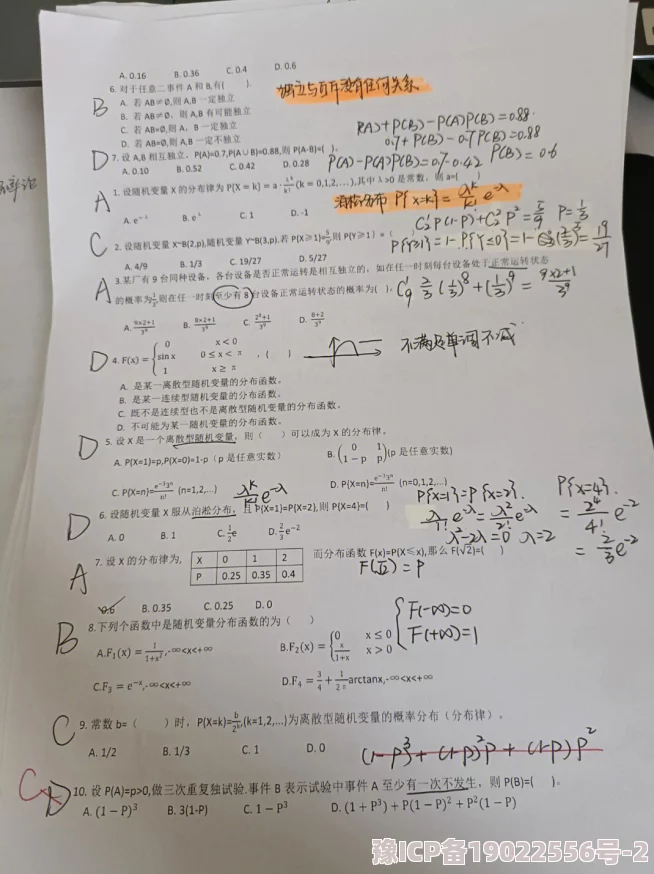 A. 0.16 B. 0.36 C. 0.4 D. 0.6
6. 对于任意二事件 A 和 B,有( ).
B
独立与互斥没有任何关系
A. 若 AB≠∅,则 A,B 一定独立
B. 若 AB≠∅, 则 A,B 有可能独立
C. 若 AB=∅,则 A, B 一定独立
D. 若 AB=∅,则 A,B 一定不独立
P(A)+P(B)-P(A)P(B)=0.88
0.7+P(B)-0.7P(B)=0.88
D 7. 设 A,B 相互独立, P(A)=0.7,P(A∪B)=0.88,则 P(A-B)=( ).
P(A)-P(A)P(B)=0.7-0.42 P(B)=0.6
A. 0.10 B. 0.52 C. 0.42 D. 0.28
A 1. 设随机变量 X 的分布律为 P{X = k} = a · λ^k/k! (k = 0,1,2,…),其中 λ>0 是常数, 则 a=( )
泊松分布 P{x=k}=λ^k/k! e^-λ
A. e^-λ B. e^λ C. 1 D. -1
C₂¹P(1-P)+C₂²P²=5/9 P=1/3
C 2. 设随机变量 X~B(2,p),随机变量 Y~B(3,p).若 P{X≥1}=5/9,则 P{Y≥1} = (
P{Y≥1}=1-P{Y≤0}=1-C₃⁰(2/3)³=19/27
A. 4/9 B. 1/3 C. 19/27 D. 5/27
A 3.某厂有 9 台同种设备, 各台设备是否正常运转是相互独立的, 如在任一时刻每台设备处于正常运转状态
的概率为1/3,则在任一时刻至少有 8 台设备正常运转状态的概率为( ).
C₉¹ 2/3 (1/3)⁸+(1/3)⁹=9×2+1/3⁹
A. 9×2+1/3⁹ B. 8×2+1/3⁹ C. 2⁹+1/3⁹ D. 8+2/3⁹
D 4. F(x) = { 0 x<0
sin x 0≤x<π , ( )
1 x≥π
不满足单调不减
A. 是某一离散型随机变量的分布函数。
B. 是某一连续型随机变量的分布函数。
C. 既不是连续型也不是离散型随机变量的分布函数。
D. 不可能为某一随机变量的分布函数。
D 5. 设 X 是一个离散型随机变量, 则( )可以成为 X 的分布律。
A. P{X=1}=p,P{X=0}=1-p (p 是任意实数) B. (0 1
1-p p)(p 是任意实数)
C. P{X=n}=e^-3 3^n/n! (n=1,2,...) D. P{X=n}=e^-3 3^n/n! (n=0,1,2,...)
λ^k/k! e^-λ
P{x=1}=P{x=2}. P{x=4}.
D 6. 设随机变量 X 服从泊松分布, 且 P{X=1}=P{X=2},则 P{X=4}=( )
λ/1! e^-λ=λ²/2! e^-λ =2⁴/4! e^-2
λ²-2λ=0 λ=2
=2/3 e^-2
A. 0 B. 1 C. 1/2 e D. 2/3 e^-2
A 7. 设 X 的分布律为, X 0 1 2 而分布函数 F(x)=P{X≤x},那么 F(√2)=( )
P 0.25 0.35 0.4
F(√2)=P
0.6 B. 0.35 C. 0.25 D. 0
B 8.下列个函数中是随机变量分布函数的为( )
{F(-∞)=0
F(+∞)=1
A.F₁(x) = 1/1+x²,-∞<x<+∞ B.F₂(x) = {0 x≤0
x/1+x x>0
C.F₃ = e^-x,-∞<x<+∞ D.F₄ = 3/4 + 1/2π arctanx,-∞<x<+∞
C 9. 常数 b= ( ) 时, P{X=k}=b/2^k,(k=1,2,...)为离散型随机变量的概率分布(分布律)。
A. 1/2 B. 1/3 C. 1 D. 0
(1-P)³+(1-P)²P+(1-P)P²
C D 10. 设 P(A)=p>0,做三次重复独试验.事件 B 表示试验中事件 A 至少有一次不发生, 则 P(B)=( )。
A. (1 − P)³ B. 3(1-P) C. 1 − P³ D. (1 + P³) + P(1 − P)² + P²(1 − P)
豫ICP备19022556号-2